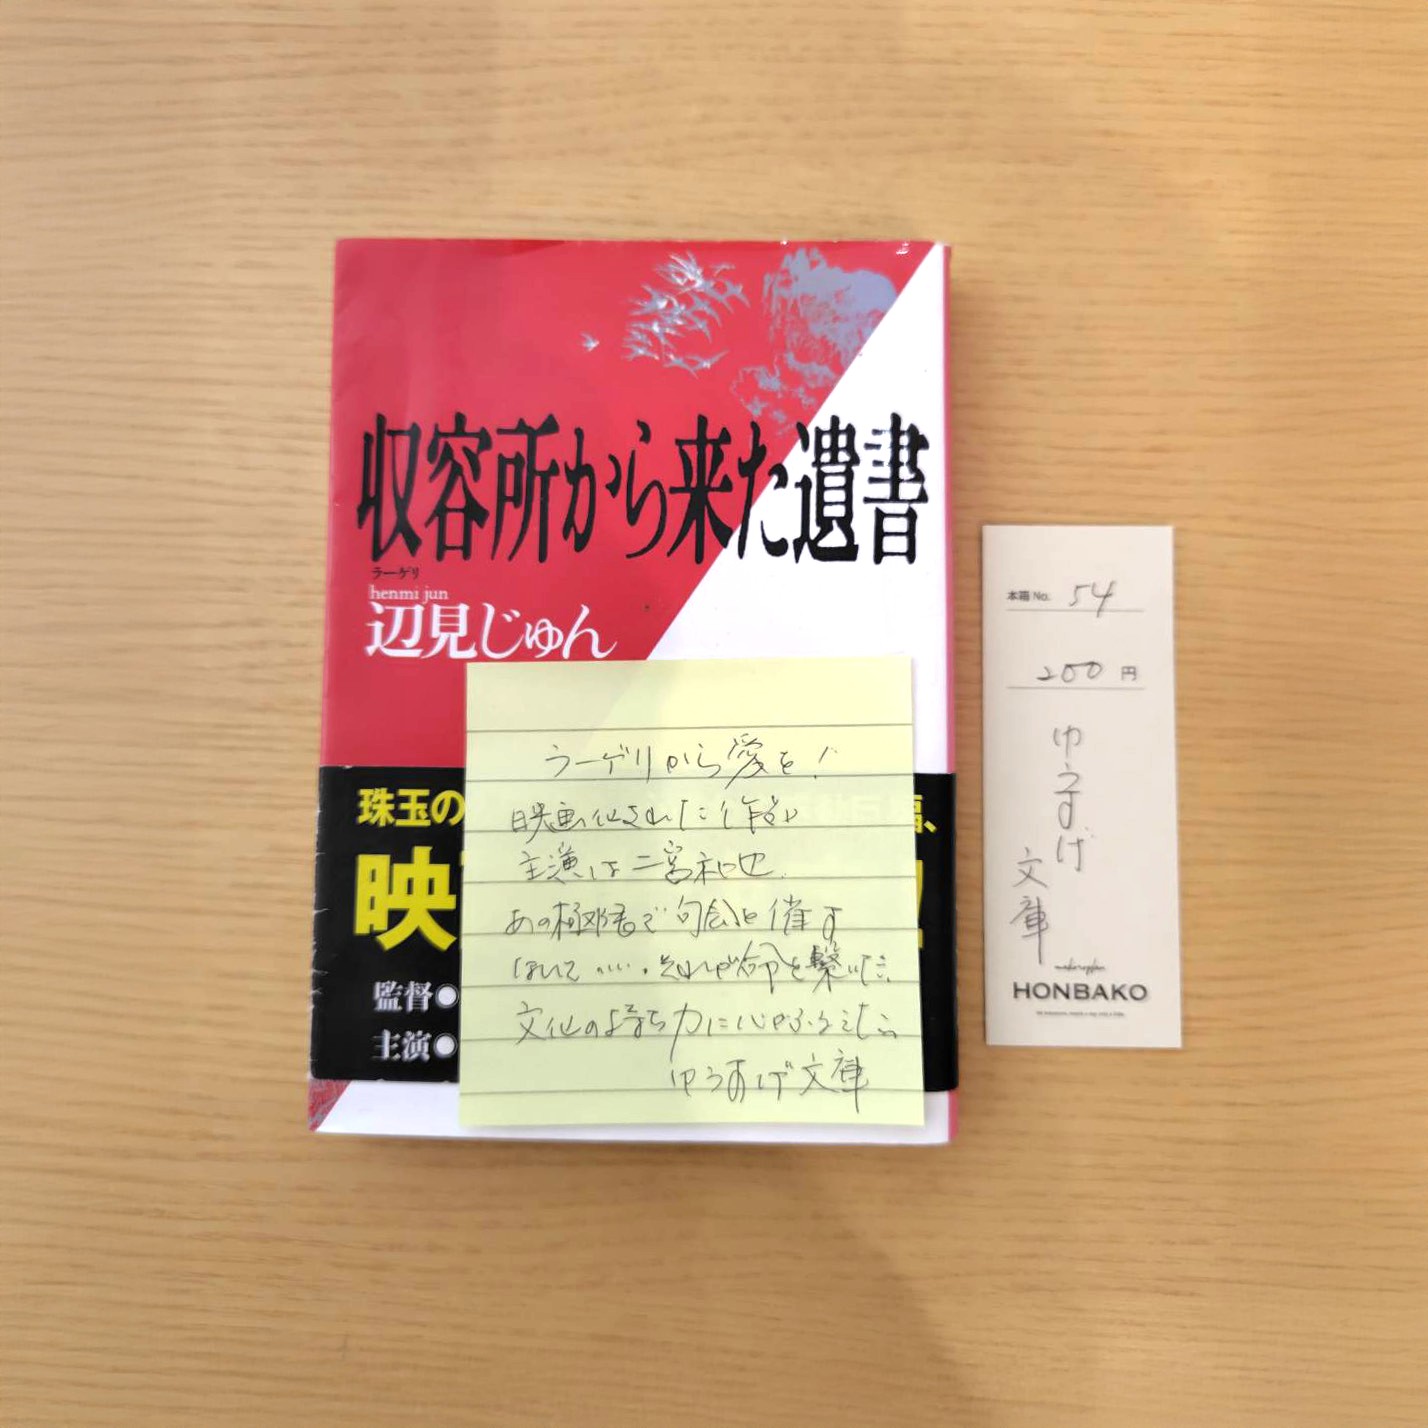 収容所から来た遺書
ラーゲリ
henmi jun
辺見じゅん
珠玉の
映
監督●
主演●
ラーゲリから愛を!
映画化された作品
主演は二宮和也.
あの極寒で句会を催す
なんて・・・・.それが命を繋いだ.
文化の持つ力に心ふるえた
ゆうすげ文庫
本箱 No. 54
200 円
ゆうすげ
文庫
HONBAKO